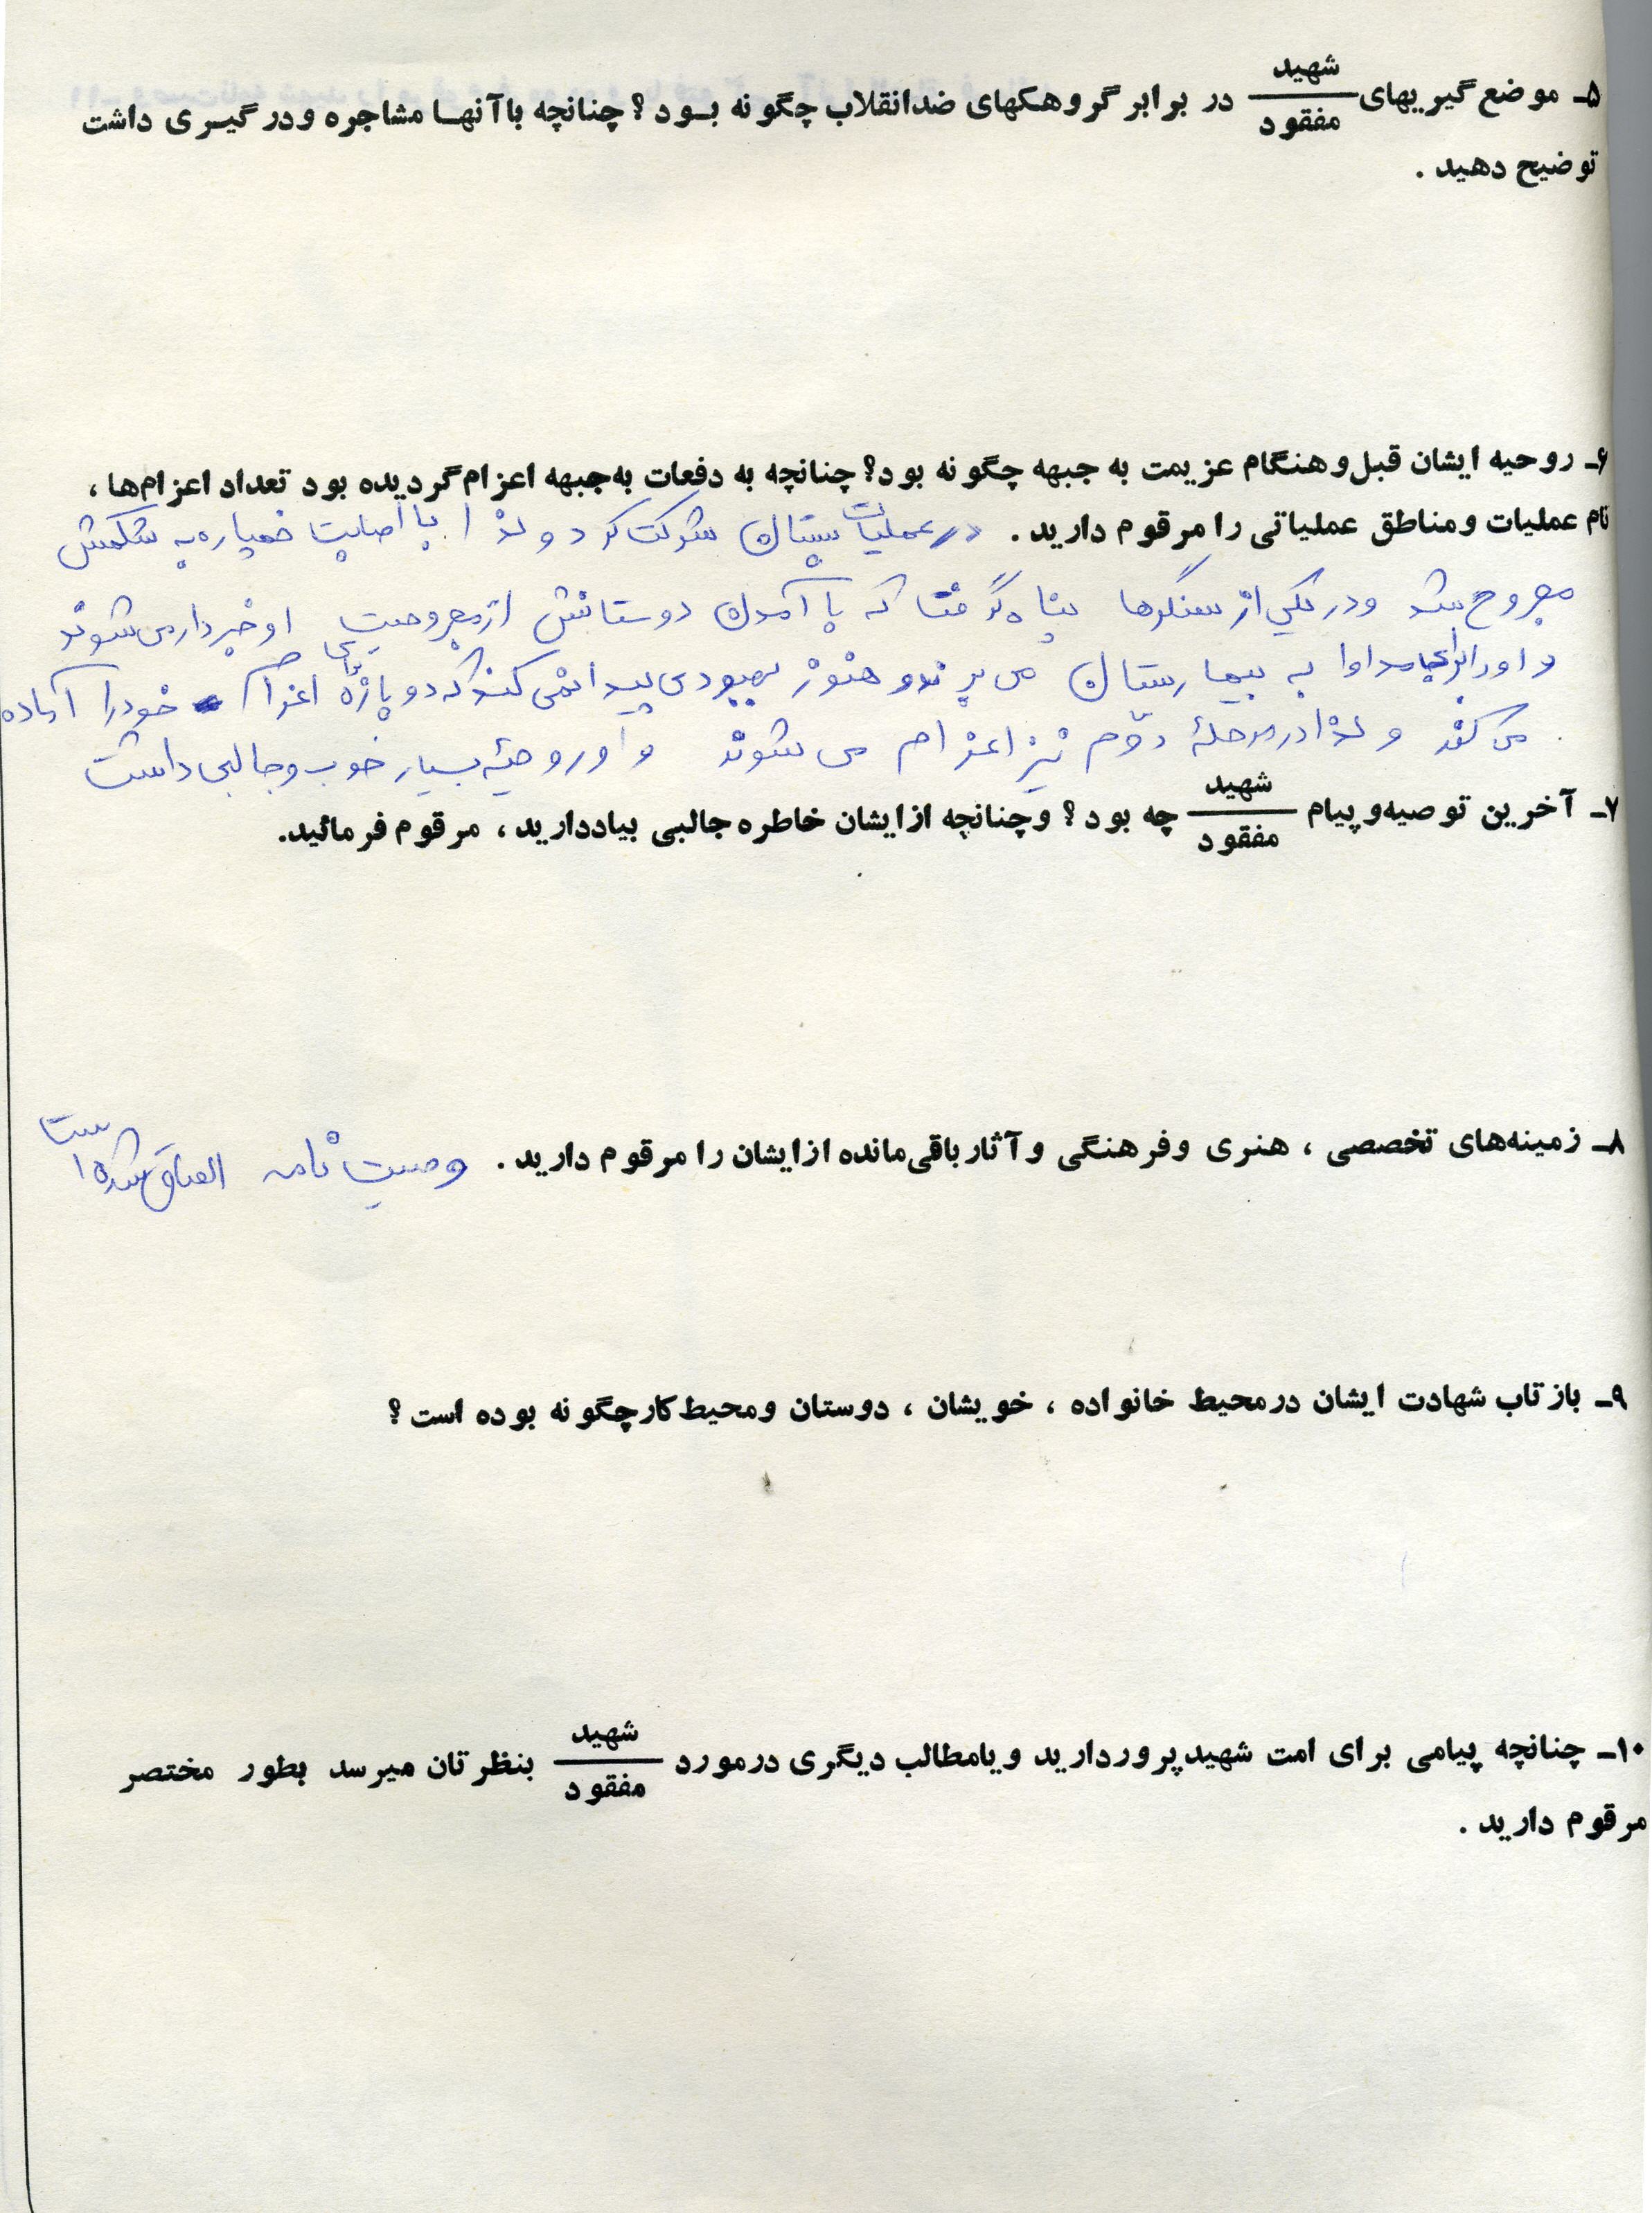 ۵ـ موضع‌گیریهای شهید/مفقود در برابر گروهکهای ضدانقلاب چگونه بود؟ چنانچه باآنها مشاجره ودرگیری داشت
توضیح دهید.
۶ـ روحیه ایشان قبل‌وهنگام عزیمت به جبهه چگونه بود؟ چنانچه به دفعات به‌جبهه اعزام‌گردیده بود تعداد اعزام‌ها،
نام عملیات ومناطق عملیاتی را مرقوم دارید. در عملیات بستان شرکت کرد و لذا با اصابت خمپاره به شکمش
مجروح شد ودر یکی از سنگرها پناه گرفت که با آمدن دوستانش از مجروحیت او خبردار می شوند
و اورا برای مداوا به بیمارستان می برند و هنوز بهبودی پیدا نمی کند که دوباره برای اعزام خود را آماده
می کند و لذا در مرحلهٔ دوّم نیز اعزام می شوند و او روحیهٔ بسیار خوب وجالبی داشت
۷ـ آخرین توصیه‌وپیام شهید/مفقود چه بود؟ وچنانچه ازایشان خاطره جالبی بیاددارید، مرقوم فرمائید.
۸ـ زمینه‌های تخصصی، هنری وفرهنگی وآثارباقی‌مانده ازایشان را مرقوم دارید. وصیت نامه الصاق شده است
۹ـ بازتاب شهادت ایشان درمحیط خانواده، خویشان، دوستان ومحیط‌کارچگونه بوده است؟
۱۰ـ چنانچه پیامی برای امت شهیدپروردارید ویامطالب دیگری درمورد شهید/مفقود بنظرتان میرسد بطور مختصر
مرقوم دارید.